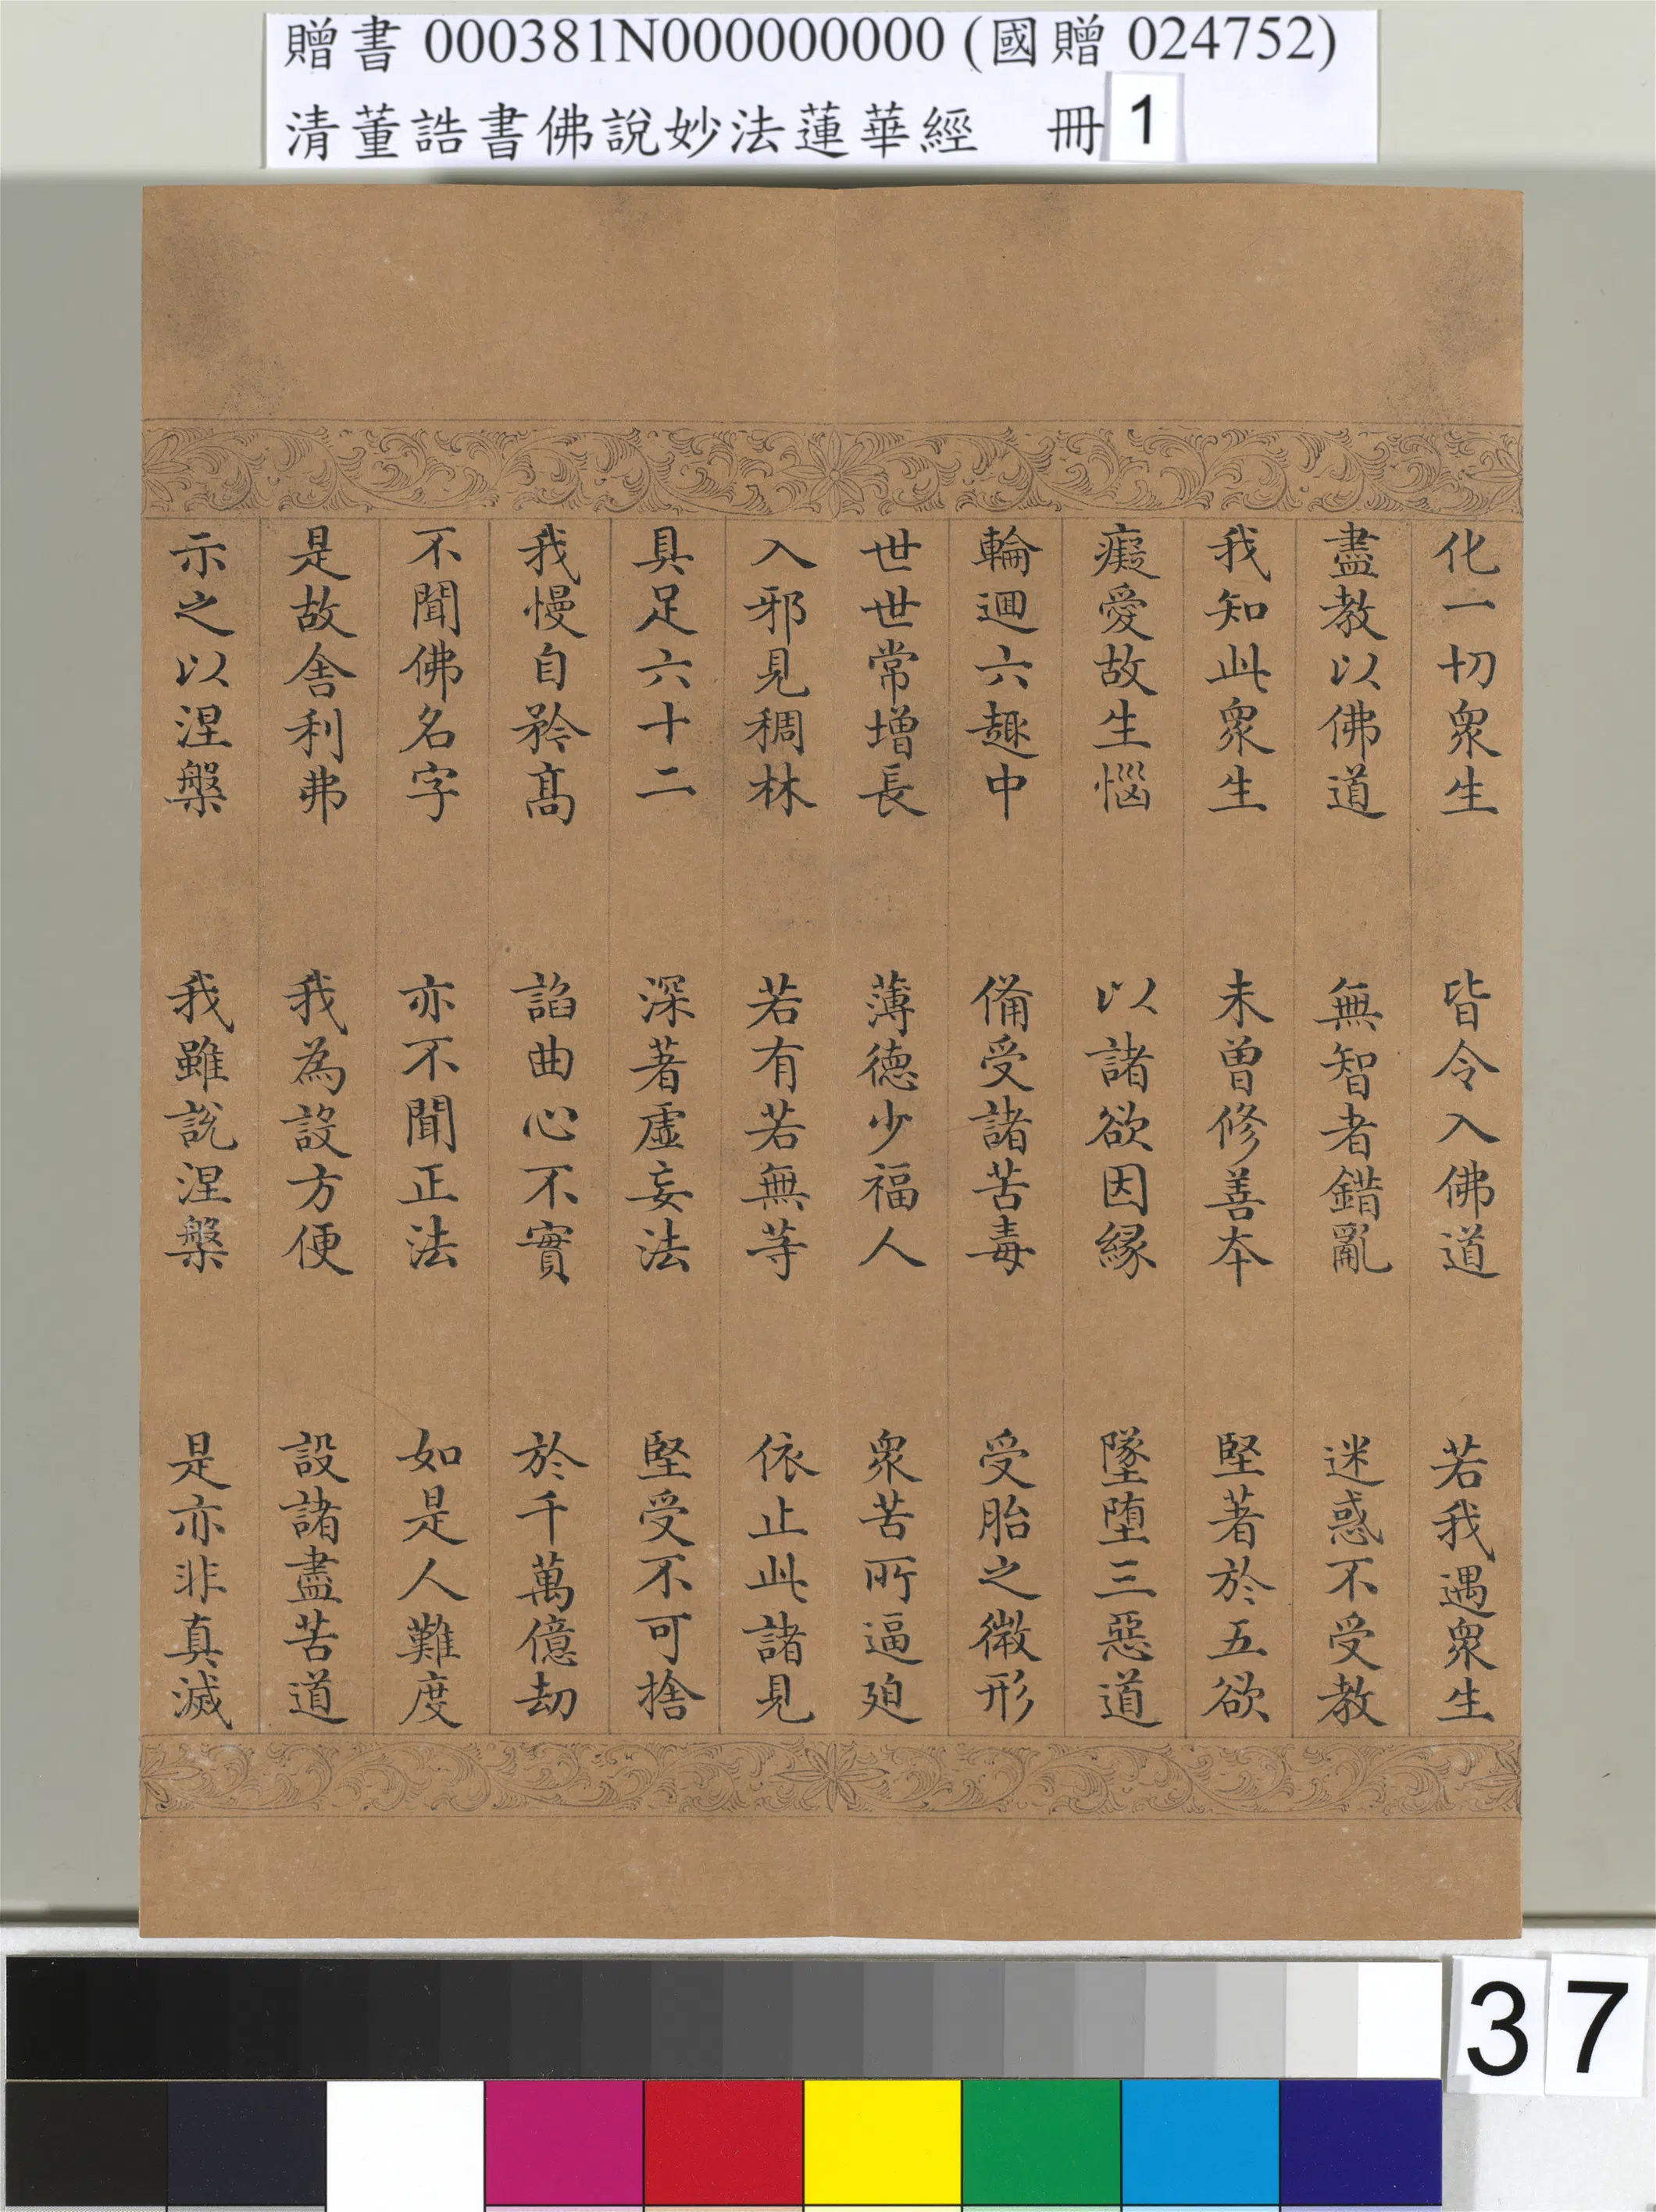 贈書 000381N000000000 (國贈 024752)
清董誥書佛說妙法蓮華經 冊1
化一切衆生 皆令入佛道 若我遇衆生
盡教以佛道 無智者錯亂 迷惑不受教
我知此衆生 未曾修善本 堅著於五欲
癡愛故生惱 以諸欲因緣 墜墮三惡道
輪迴六趣中 備受諸苦毒 受胎之微形
世世常增長 薄德少福人 衆苦所逼迫
入邪見稠林 若有若無等 依止此諸見
具足六十二 深著虛妄法 堅受不可捨
我慢自矜高 諂曲心不實 於千萬億劫
不聞佛名字 亦不聞正法 如是人難度
是故舍利弗 我為設方便 設諸盡苦道
示之以涅槃 我雖說涅槃 是亦非真滅
37